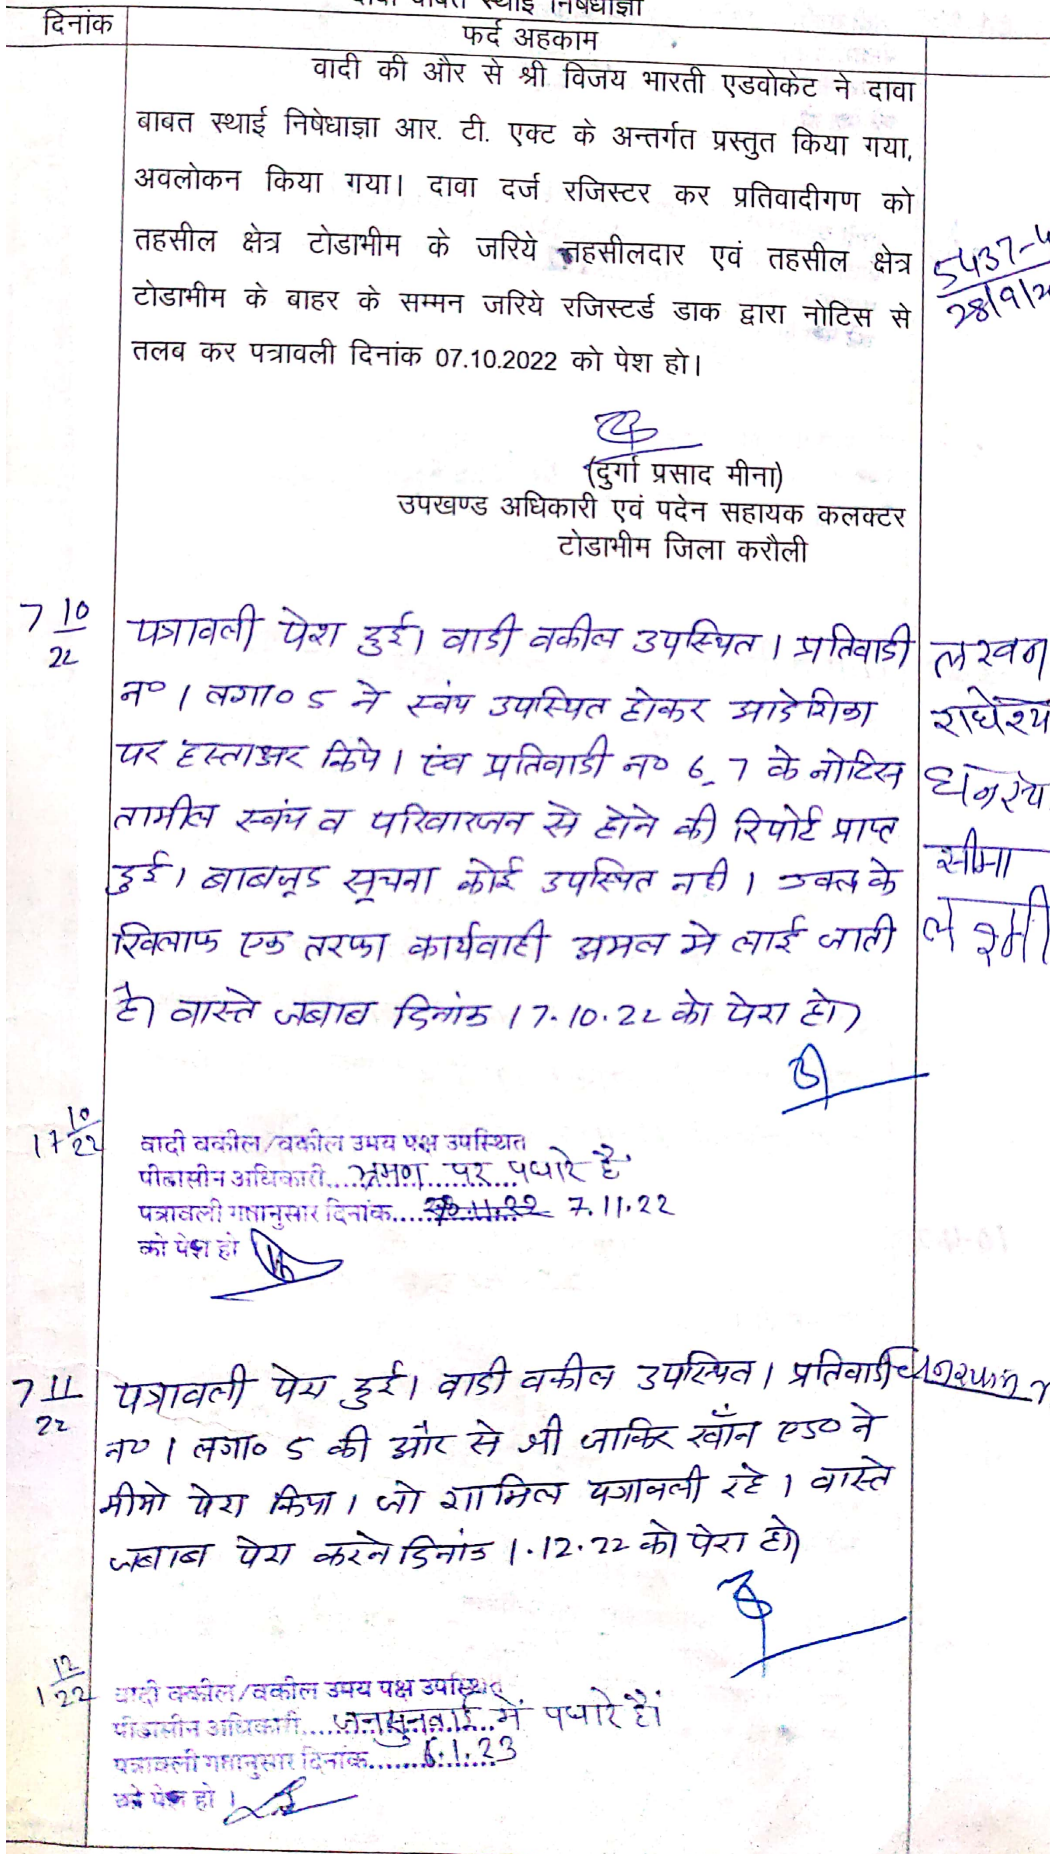 दावा बाबत स्थाई निषेधाज्ञा
दिनांक
फर्द अहकाम
वादी की और से श्री विजय भारती एडवोकेट ने दावा
बाबत स्थाई निषेधाज्ञा आर. टी. एक्ट के अन्तर्गत प्रस्तुत किया गया,
अवलोकन किया गया। दावा दर्ज रजिस्टर कर प्रतिवादीगण को
तहसील क्षेत्र टोडाभीम के जरिये तहसीलदार एवं तहसील क्षेत्र
टोडाभीम के बाहर के सम्मन जरिये रजिस्टर्ड डाक द्वारा नोटिस से
तलब कर पत्रावली दिनांक 07.10.2022 को पेश हो।
5437-4
28/9/2
(दुर्गा प्रसाद मीना)
उपखण्ड अधिकारी एवं पदेन सहायक कलक्टर
टोडाभीम जिला करौली
7 10/22
पत्रावली पेश हुई। वादी वकील उपस्थित। प्रतिवादी
न० 1 लगा० 5 ने स्वंय उपस्थित होकर आदेशिका
पर हस्ताक्षर किये। एंव प्रतिवादी न० 6, 7 के नोटिस
तामील स्वंय व परिवारजन से होने की रिपोर्ट प्राप्त
हुई। बाबजूद सूचना कोई उपस्थित नही। उक्त के
खिलाफ एक तरफा कार्यवाही अमल मे लाई जाती
है। वास्ते जबाब दिनांक 17.10.22 को पेश हो।
लखन
राधेश्य
घनश्य
सीमा
17 10/22
वादी वकील/वकील उभय पक्ष उपस्थित
पीठासीन अधिकारी....भ्रमण पर पधारे है
पत्रावली गतानुसार दिनांक.... 7.11.22
को पेश हो
7 11/22
पत्रावली पेश हुई। वादी वकील उपस्थित। प्रतिवादी
न० 1 लगा० 5 की और से श्री जाकिर खाँन एड० ने
मीमो पेश किया। जो शामिल पत्रावली रहे। वास्ते
जबाब पेश करने दिनांक 1.12.22 को पेश हो।
1 12/22
वादी वकील/वकील उभय पक्ष उपस्थित
पीठासीन अधिकारी....जनसुनवाई में पधारे है।
पत्रावली गतानुसार दिनांक.......6.1.23
को पेश हो।